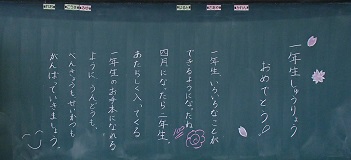 一年生しゅうりょう
おめでとう!
一年生 いろいろなことが
できるようになったね
四月になったら二年生。
あたらしく入ってくる
一年生のお手本になれる
ように、うんどうも、
べんきょうも、せいかつも
がんばっていきましょう。